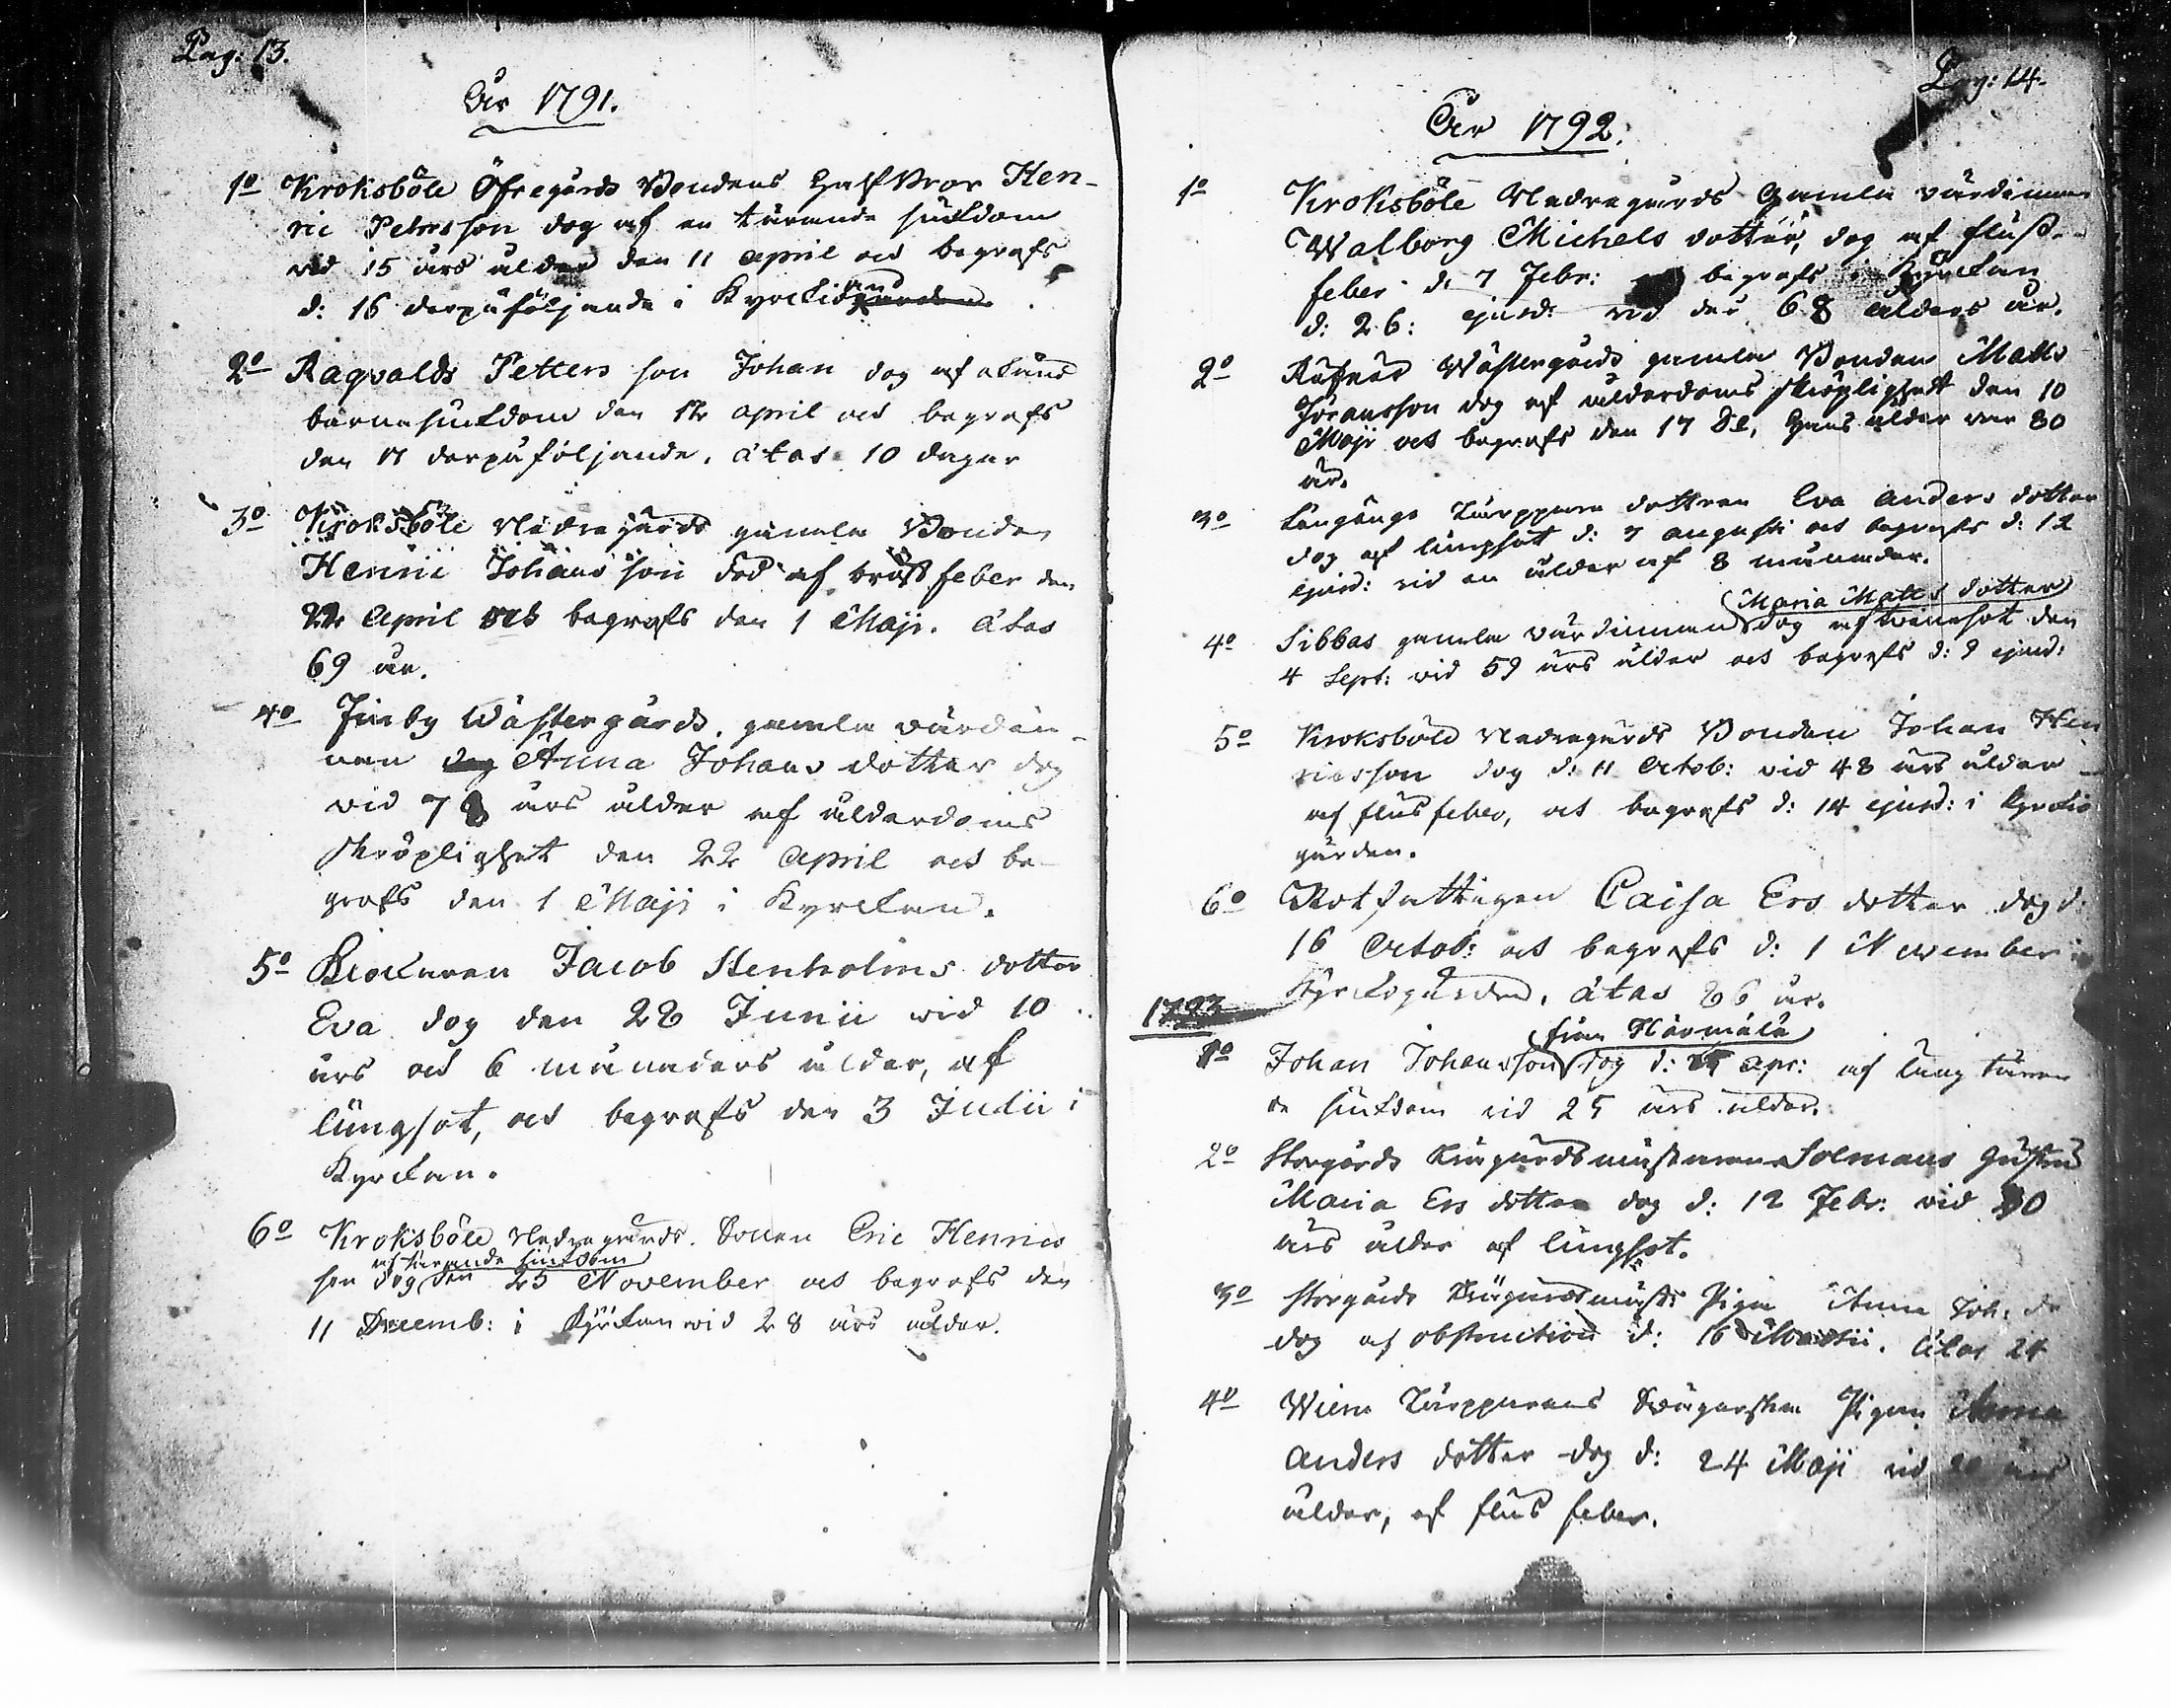 Pag: 13.
År 1791.
1o Kroksböle Öfregårds Bondens Half Bror Hen-
ric Petersson dog af en tärande siukdom
vid 15 års ålder den 11 april och begrofs
d: 16 derpåföljande i Kyrckio
2o Ragvalds Petters son Johan dog af okänd
barnasiukdom den 12 april och begrofs
den 17 derpåföljande. ätas 10 dagar
3o Kroksböle Nedregårds gamla Bonden
Henric Johans son död af bröst feber den
22 April och begrofs den 1 Maji. ätas
69 år.
4o Finby Wästergårds gamla värdin-
nan Anna Johans dotter dog
vid 78 års ålder af ålderdoms
skröplighet den 22 April och be-
grofs den 1 Maji i Kyrckan.
5o Klockaren Jacob Stenholms dotter
Eva dog den 28 Junii vid 10
års och 6 månaders ålder, af
lungsot, och begrofs den 3 Julii i
Kyrckan.
6o Kroksböle Nedregårds Sonen Eric Henrics
af tärande siukdom
son dog den 25 November och begrofs den
11 Decemb: i Kyrckan vid 28 års ålder.
Pag: 14.
År 1792.
1o Kroksböle Nedregårds Gamla värdinnan
Walborg Michels dotter, dog af fluss-
feber d. 7 Febr: begrofs i Kyrckan
d: 26: ejusd: vid des 68 ålders år.
2o Wästergårds gamla Bonden Matts
Göransson dog af ålderdoms skröplighet den 10
Maji och begrofs den 17 Hans ålder var 80
år.
3o Torpparens dottren Eva Anders dotter
dog af lungsot d: 7 augusti och begrofs d: 12
ejusd: vid en ålder af 8 månader.
(Maria Matts dotter)
4o Sibbas gamla värdinnan dog af den
4 Sept: vid 59 års ålder och begrofs d: 9 ejusd:
5o Kroksböle Nedregårds Bonden Johan Hen
ricsson dog d: 11 Octob: vid 48 års ålder
af flusfeber, och begrofs d: 14 ejusd: i Kyrckio
gården.
6o Rotfattigen Caisa Ers dotter dog d:
16 Octob: och begrofs d: 1 November i
Kyrckogården. ätas 86 år.
1793
(från Härmälä)
1o Johan Johansson dog d: apr: af lung täran
de siukdom vid 25 års ålder.
2o Storgårds Solmans hustru
Maria Ers dotter dog d: 12 Febr: vid
års ålder af lungsot.
3o Storgårds Pigan Anna Joh: do
dog af obstruction d: 16 Martii. ätas 24
4o Torpparens Svägerska Pigan Anna
Anders dotter dog d: 24 Maji vid
ålder, af flus feber.